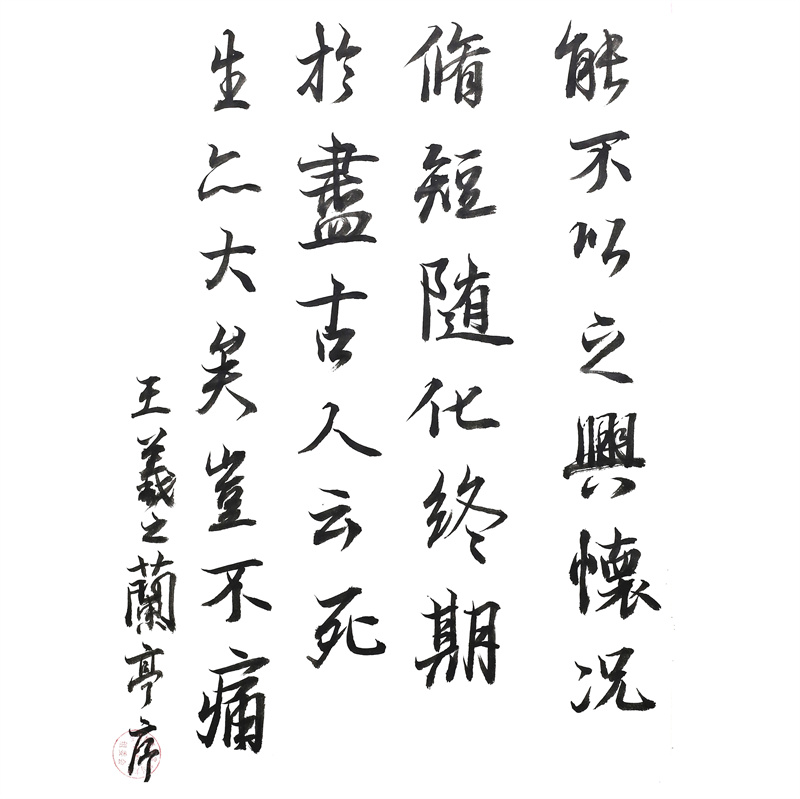 能不以之興懷况
脩短随化终期
於盡古人云死
生亦大矣豈不痛
王羲之蘭亭序